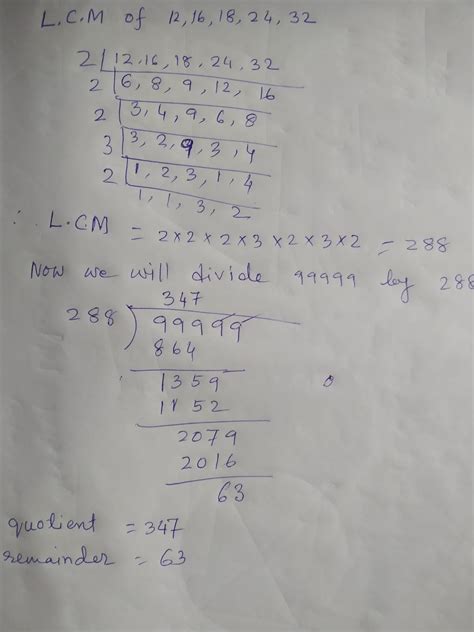 L.C.M of 12,16,18,24,32
2 12,16,18,24,32
2 6, 8, 9, 12, 16
2 3, 4, 9, 6, 8
3 3, 2, 9, 3, 4
2 1, 2, 3, 1, 4
1, 1, 3, 2
∴ L.C.M = 2×2×2×3×2×3×2 = 288
Now we will divide 99999 by 288
347
288 ) 99999
864
1359
1152
2079
2016
63
quotient = 347
remainder = 63